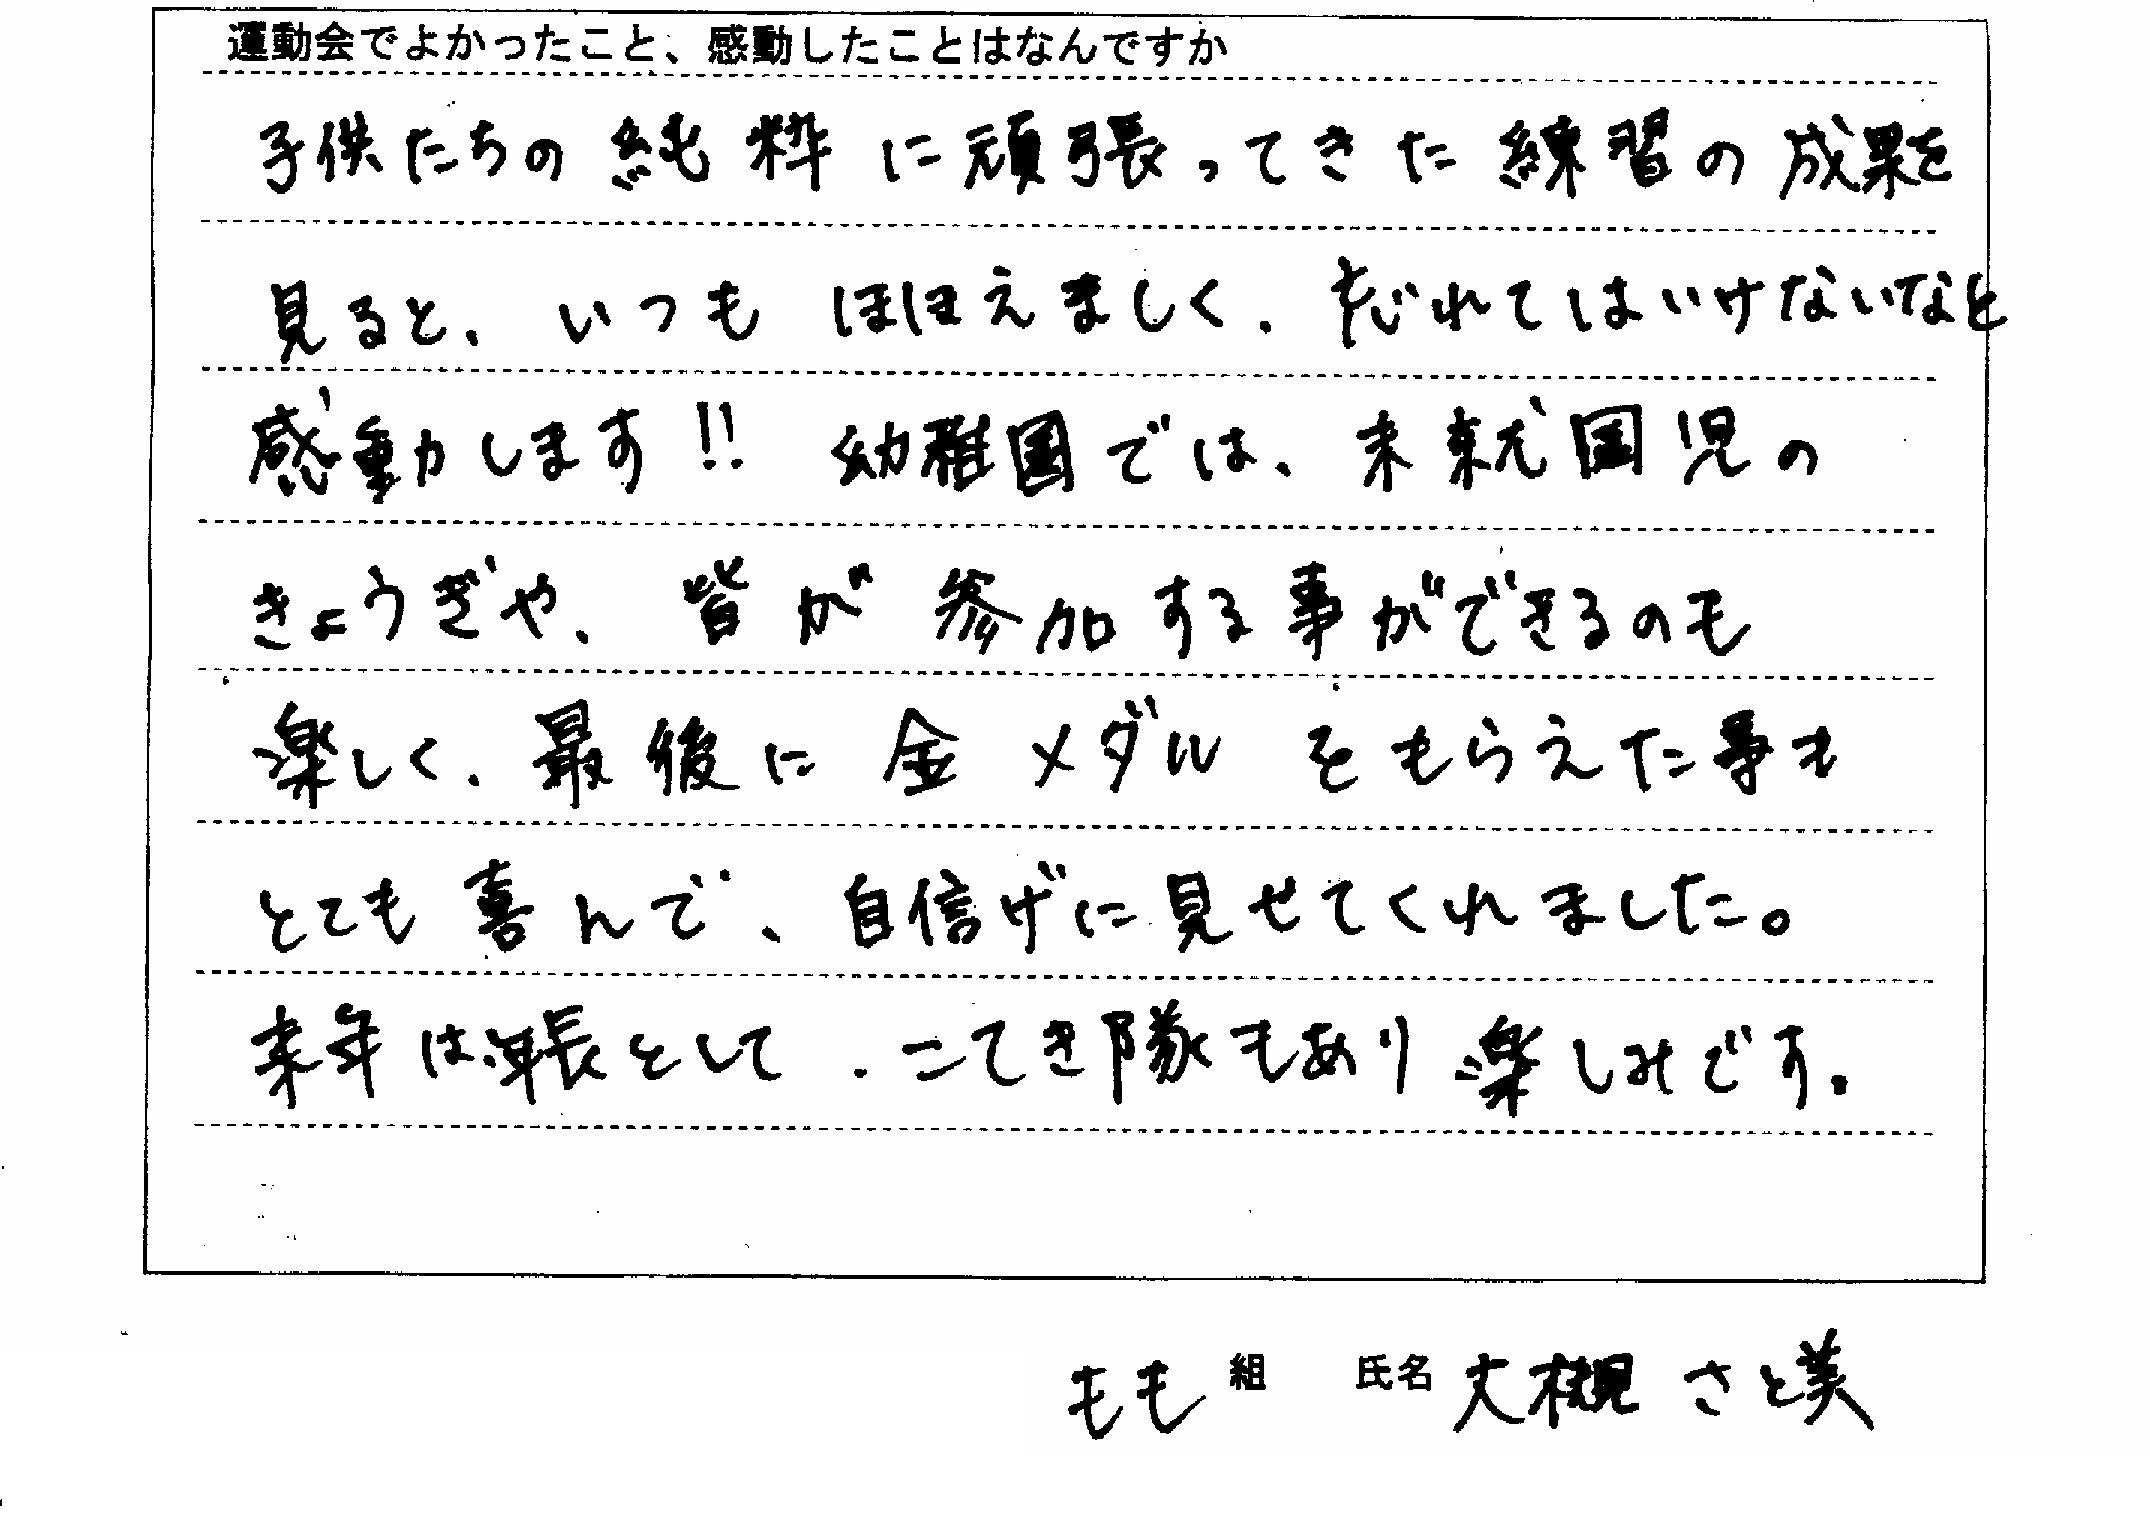 運動会でよかったこと、感動したことはなんですか
子供たちの純粋に頑張ってきた練習の成果を
見ると、いつもほほえましく、忘れてはいけないなと
感動します!! 幼稚園では、未就園児の
きょうぎや、皆が参加する事ができるのも
楽しく、最後に金メダルをもらえた事も
とても喜んで、自信げに見せてくれました。
来年は年長として、こてき隊もあり楽しみです。
もも組 氏名 大槻 さと美